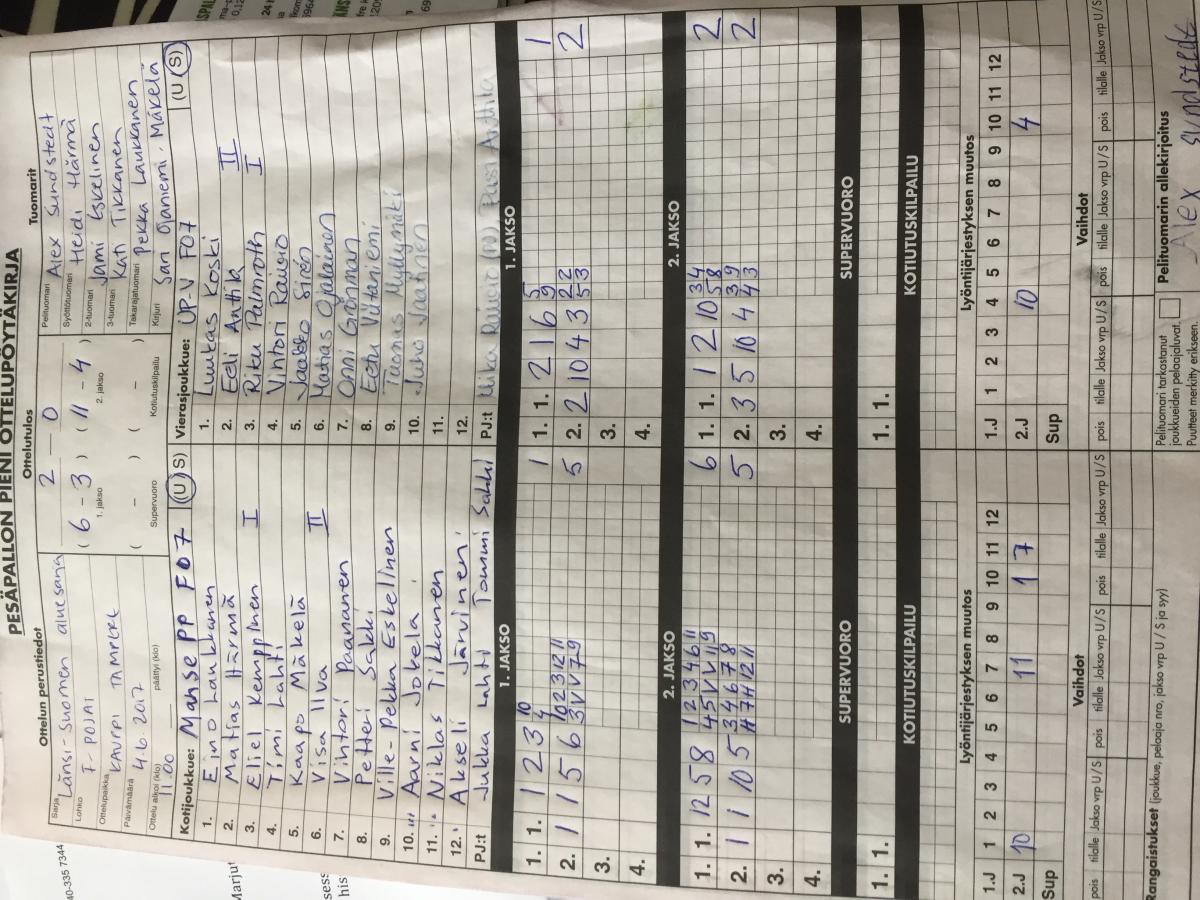 PESÄPALLON PIENI OTTELUPÖYTÄKIRJA
Ottelun perustiedot
Sarja Länsi-Suomen aluesarja
Lohko F-POJAT
Ottelupaikka KAUPPI TAMPERE
Päivämäärä 4.6.2017
Ottelu alkoi (klo) 11.00 päättyi (klo)
Ottelutulos
2 - 0
( 6 - 3 ) ( 11 - 4 )
1. jakso 2. jakso
( - ) ( - )
Supervuoro Kotiutuskilpailu
Tuomarit
Pelituomari Alex Sundstedt
Syöttötuomari Heidi Härmä
2-tuomari Jami Eskelinen
3-tuomari Kati Tikkanen
Takarajatuomari Pekka Laukkanen
Kirjuri Sari Ojaniemi-Mäkelä
Kotijoukkue: Manse PP F07 (U S)
1. Eino Laukkanen
2. Matias Härmä
3. Eliel Kemppinen I
4. Timi Lahti
5. Kaapo Mäkelä
6. Visa Ilva II
7. Vihtori Paananen
8. Petteri Sakki
9. Ville-Pekka Eskelinen
10. Aarni Jokela
11. Niklas Tikkanen
12. Akseli Järvinen
PJ:t Jukka Lahti Tommi Sakki
Vierasjoukkue: UP-V F07 (U S)
1. Luukas Koski
2. Eeli Anttila II
3. Riku Palmroth I
4. Vihtori Raivio
5. Jaakko Sirén
6. Matias Ojalainen
7. Onni Grönman
8. Eetu Viltaniemi
9. Tuomas Myllymäki
10. Juho Jaatinen
11.
12.
PJ:t Mika Raivio Pasi Anttila
1. JAKSO
1. 1. 1 2 3 10 4 1
2. 1 1 5 6 10 2 3 12 11 3 V V 7 9 5
3.
4.
1. JAKSO
1. 1. 2 1 6 5 9 1
2. 2 10 4 3 22 53 2
3.
4.
2. JAKSO
1. 1. 12 5 8 1 2 3 4 6 11 4 5 V V 11 9 6
2. 1 1 10 5 3 4 6 7 8 # 7 4 12 11 5
3.
4.
2. JAKSO
1. 1. 1 2 10 34 58 2
2. 3 5 10 4 39 43 2
3.
4.
SUPERVUORO
1. 1.
SUPERVUORO
1. 1.
KOTIUTUSKILPAILU
KOTIUTUSKILPAILU
Lyöntijärjestyksen muutos
1.J 1 2 3 4 5 6 7 8 9 10 11 12
2.J 10 11 1 7
Sup
Lyöntijärjestyksen muutos
1.J 1 2 3 4 5 6 7 8 9 10 11 12
2.J 10 4
Sup
Vaihdot
pois tilalle Jakso vrp U/S pois tilalle Jakso vrp U/S pois tilalle Jakso vrp U/S
Vaihdot
pois tilalle Jakso vrp U/S pois tilalle Jakso vrp U/S pois tilalle Jakso vrp U/S
Rangaistukset (joukkue, pelaaja nro, jakso vrp U / S ja syy)
Pelituomari tarkastanut
joukkueiden pelaajaluvat.
Puutteet merkitty erikseen.
Pelituomarin allekirjoitus
Alex Sundstedt
40-335 7344
Marjut
sess
his